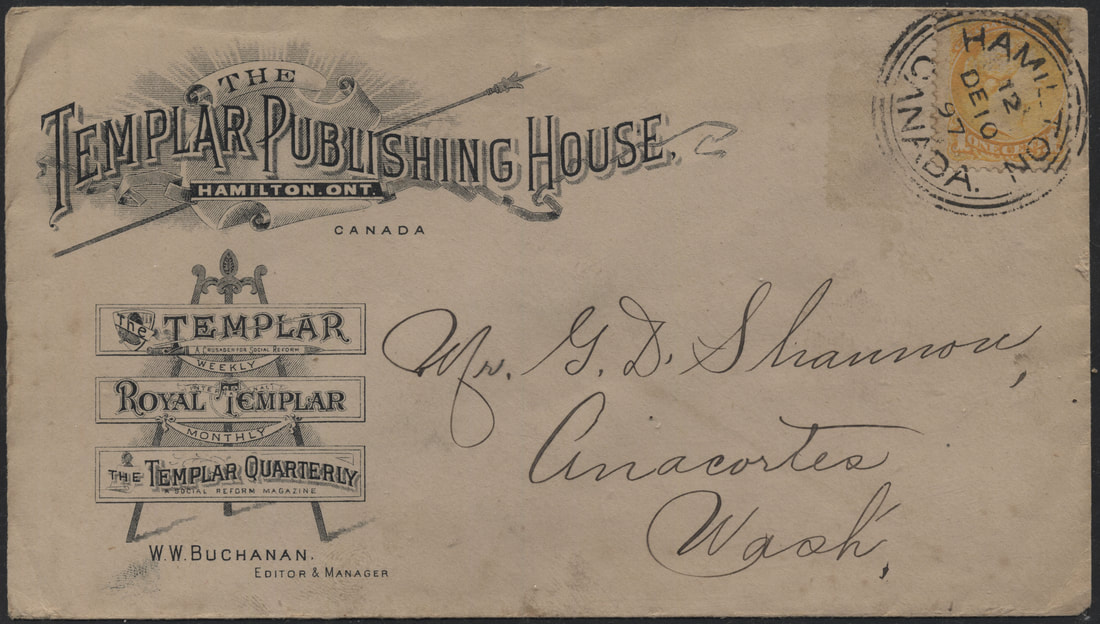 THE
TEMPLAR PUBLISHING HOUSE.
HAMILTON. ONT.
CANADA
The TEMPLAR
A CRUSADER FOR SOCIAL REFORM
WEEKLY
INTERNATIONAL
ROYAL TEMPLAR
MONTHLY
THE TEMPLAR QUARTERLY
A SOCIAL REFORM MAGAZINE
W.W. BUCHANAN.
EDITOR & MANAGER
HAMILTON
12
DE 10
97
CANADA.
Mr. G. D. Shannon,
Anacortes
Wash,